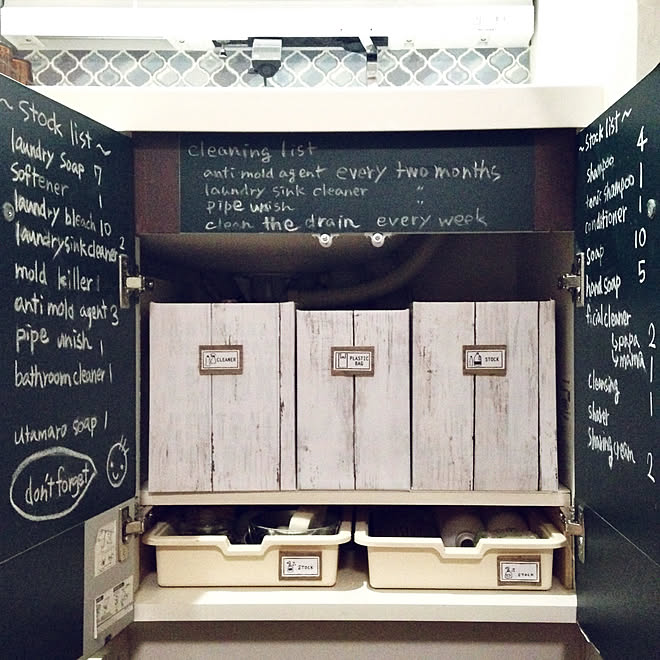 ~ Stock list ~
laundry soap 7
Softener 1
laundry bleach 10
laundry sink cleaner 2
mold killer 1
anti mold agent 3
pipe unish 1
bathroom cleaner 1
utamaro soap 1
don't forget
cleaning list
anti mold agent every two months
laundry sink cleaner "
pipe unish "
clean the drain every week
CLEANER
PLASTIC
BAG
STOCK
STOCK
STOCK
~ Stock list ~
shampoo 4
tonic shampoo 1
conditioner 1
soap 10
hand soap 5
ficial cleaner
papa 2
mama 1
cleansing 1
shaver 1
shaving cream 2